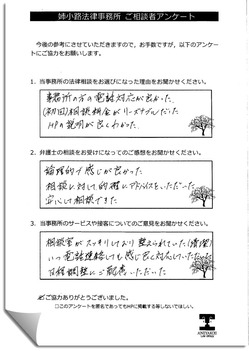 姉小路法律事務所 ご相談者アンケート
今後の参考にさせていただきますので，お手数ですが，以下のアンケートにご協力をお願いします。
1．当事務所の法律相談をお選びになった理由をお聞かせください。
事務所の方の電話対応が良かった。
(初回)相談料金がリーズナブルだった
HPの説明が良くわかった。
2．弁護士の相談をお受けになってのご感想をお聞かせください。
論理的で感じが良かった
相談に対して的確にアドバイスをいただいた
安心して相談できた
3．当事務所のサービスや接客についてのご意見をお聞かせください。
相談室がスッキリしており整えられていた(清潔)
いつ電話連絡しても感じ良く対応していただいた
日程調整にご配慮いただいた
ご協力ありがとうございました。
□このアンケートを匿名であってもHPに掲載する等しないでほしい。
ANEYAKOJI
LAW OFFICE